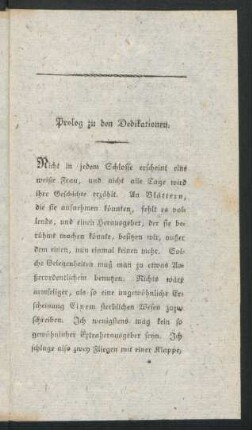 Prolog zu den Dedikationen.
Nicht in jedem Schlosse erscheint eine
weisse Frau, und nicht alle Tage wird
ihre Geschichte erzählt. An Blättern,
die sie aufnehmen könnten, fehlt es vol-
lends, und einen Herausgeber, der sie be-
rühmt machen könnte, besitzen wir, außer
dem einen, nun einmal keinen mehr. Sol-
che Gelegenheiten muß man zu etwas Au-
ßerordentlichem benutzen. Nichts wäre
armseliger, als so eine ungewöhnliche Er-
scheinung Einem sterblichen Wesen zuzu-
schreiben. Ich wenigstens mag kein so
gewöhnlicher Extraherausgeber seyn. Ich
schlage also zwey Fliegen mit einer Klappe,